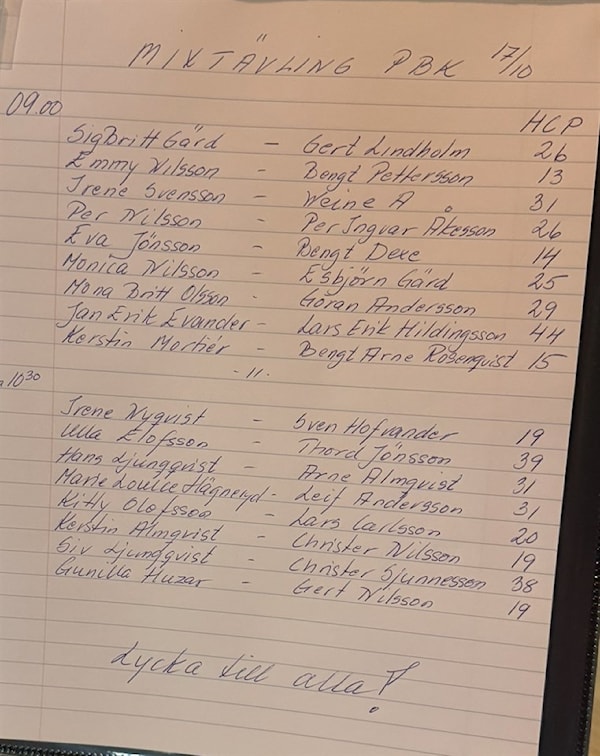 MIXTÄVLING PBK 17/10
09.00 HCP
SigBritt Gärd - Gert Lindholm 26
Emmy Nilsson - Bengt Pettersson 13
Irene Svensson - Weine A 31
Per Nilsson - Per Ingvar Åkesson 26
Eva Jönsson - Bengt Dexe 14
Monica Nilsson - Esbjörn Gärd 25
Mona Britt Olsson - Göran Andersson 29
Jan Erik Evander - Lars Erik Hildingsson 44
Kerstin Mortiér - Bengt Arne Rosenqvist 15
- 11 -
10 30
Irene Nyqvist - Sven Hofvander 19
Ulla Elofsson - Thord Jönsson 39
Hans Ljungqvist - Arne Almqvist 31
Marie Louise - Leif Andersson 31
Kitty Olofsson - Lars Carlsson 20
Kerstin Almqvist - Christer Nilsson 19
Siv Ljungqvist - Christer Sjunnesson 38
Gunilla Huzar - Gert Nilsson 19
Lycka till alla!